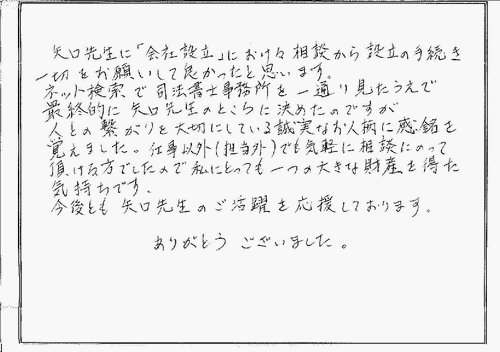 矢口先生に「会社設立」における相談から設立の手続き
一切をお願いして良かったと思います。
ネット検索で司法書士事務所を一通り見たうえで
最終的に矢口先生のところに決めたのですが
人との繋がりを大切にしている誠実なお人柄に感銘を
覚えました。仕事以外(担当外)でも気軽に相談にのって
頂ける方でしたので私にとっても一つの大きな財産を得た
気持ちです。
今後とも矢口先生のご活躍を応援しております。
ありがとうございました。